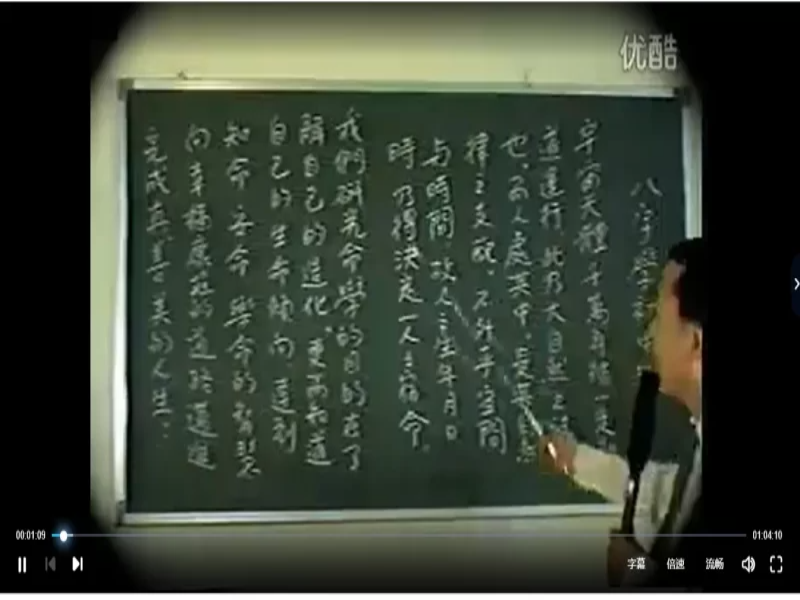 优酷
八字學
宇宙天體，千萬年循一定
道運行，此乃大自然之
也。而人處其中，受其自然
律之支配，不外乎空間
与時間，故人之生年月日
時乃得決定一人之宿命。
我們研究命學的目的在了
解自己的造化，更而知道
自己的生命傾向，達到
知命安命 命的智慧
向幸福康莊的道路邁進
完成真善美的人生.
00:01:09
01:04:10
字幕 倍速 流畅